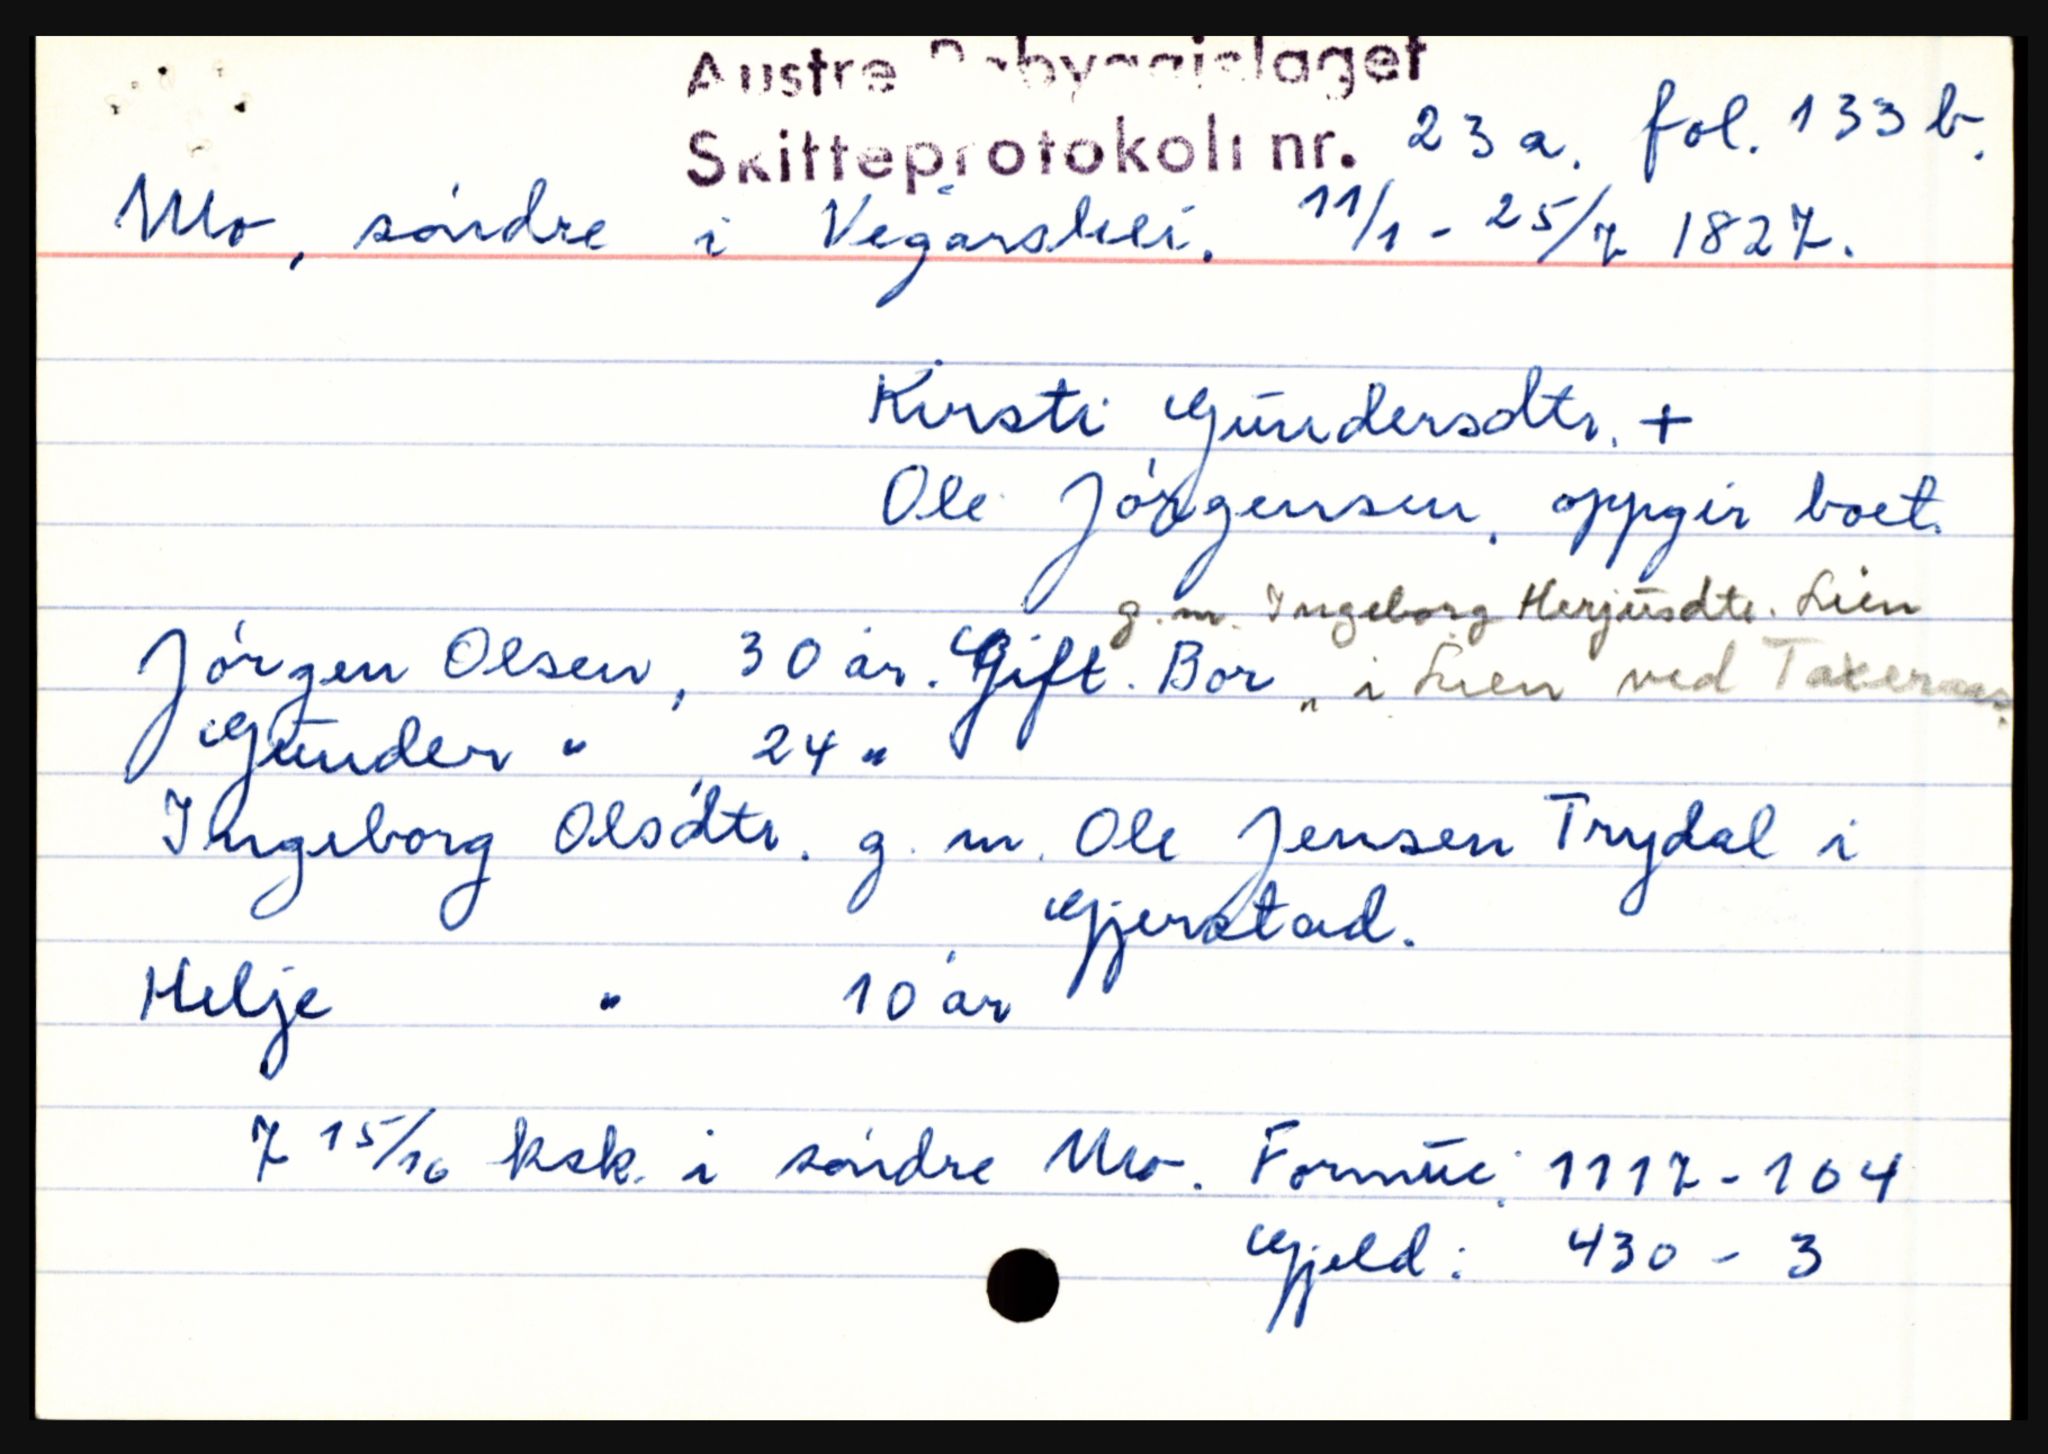 Austre Råbyggjelaget
Skifteprotokoll nr. 23 a. fol. 133 b.
Mo, söndre i Vegårshei. 11/1 - 25/7 1827.
Kirsti Gundersdtr. +
Ole Jörgensen, oppgir boet.
g. m. Ingeborg Herjusdtr. Lien
Jörgen Olsen, 30 år. Gift. Bor „ i Lien ved Takeraas.
Gunder " , 24 "
Ingeborg Olsdtr. g. m. Ole Jensen Trydal i
Gjerstad.
Helje " 10 år
7 15/16 ksk. i söndre Mo. Formue: 1117 - 104
Gjeld: 430 - 3